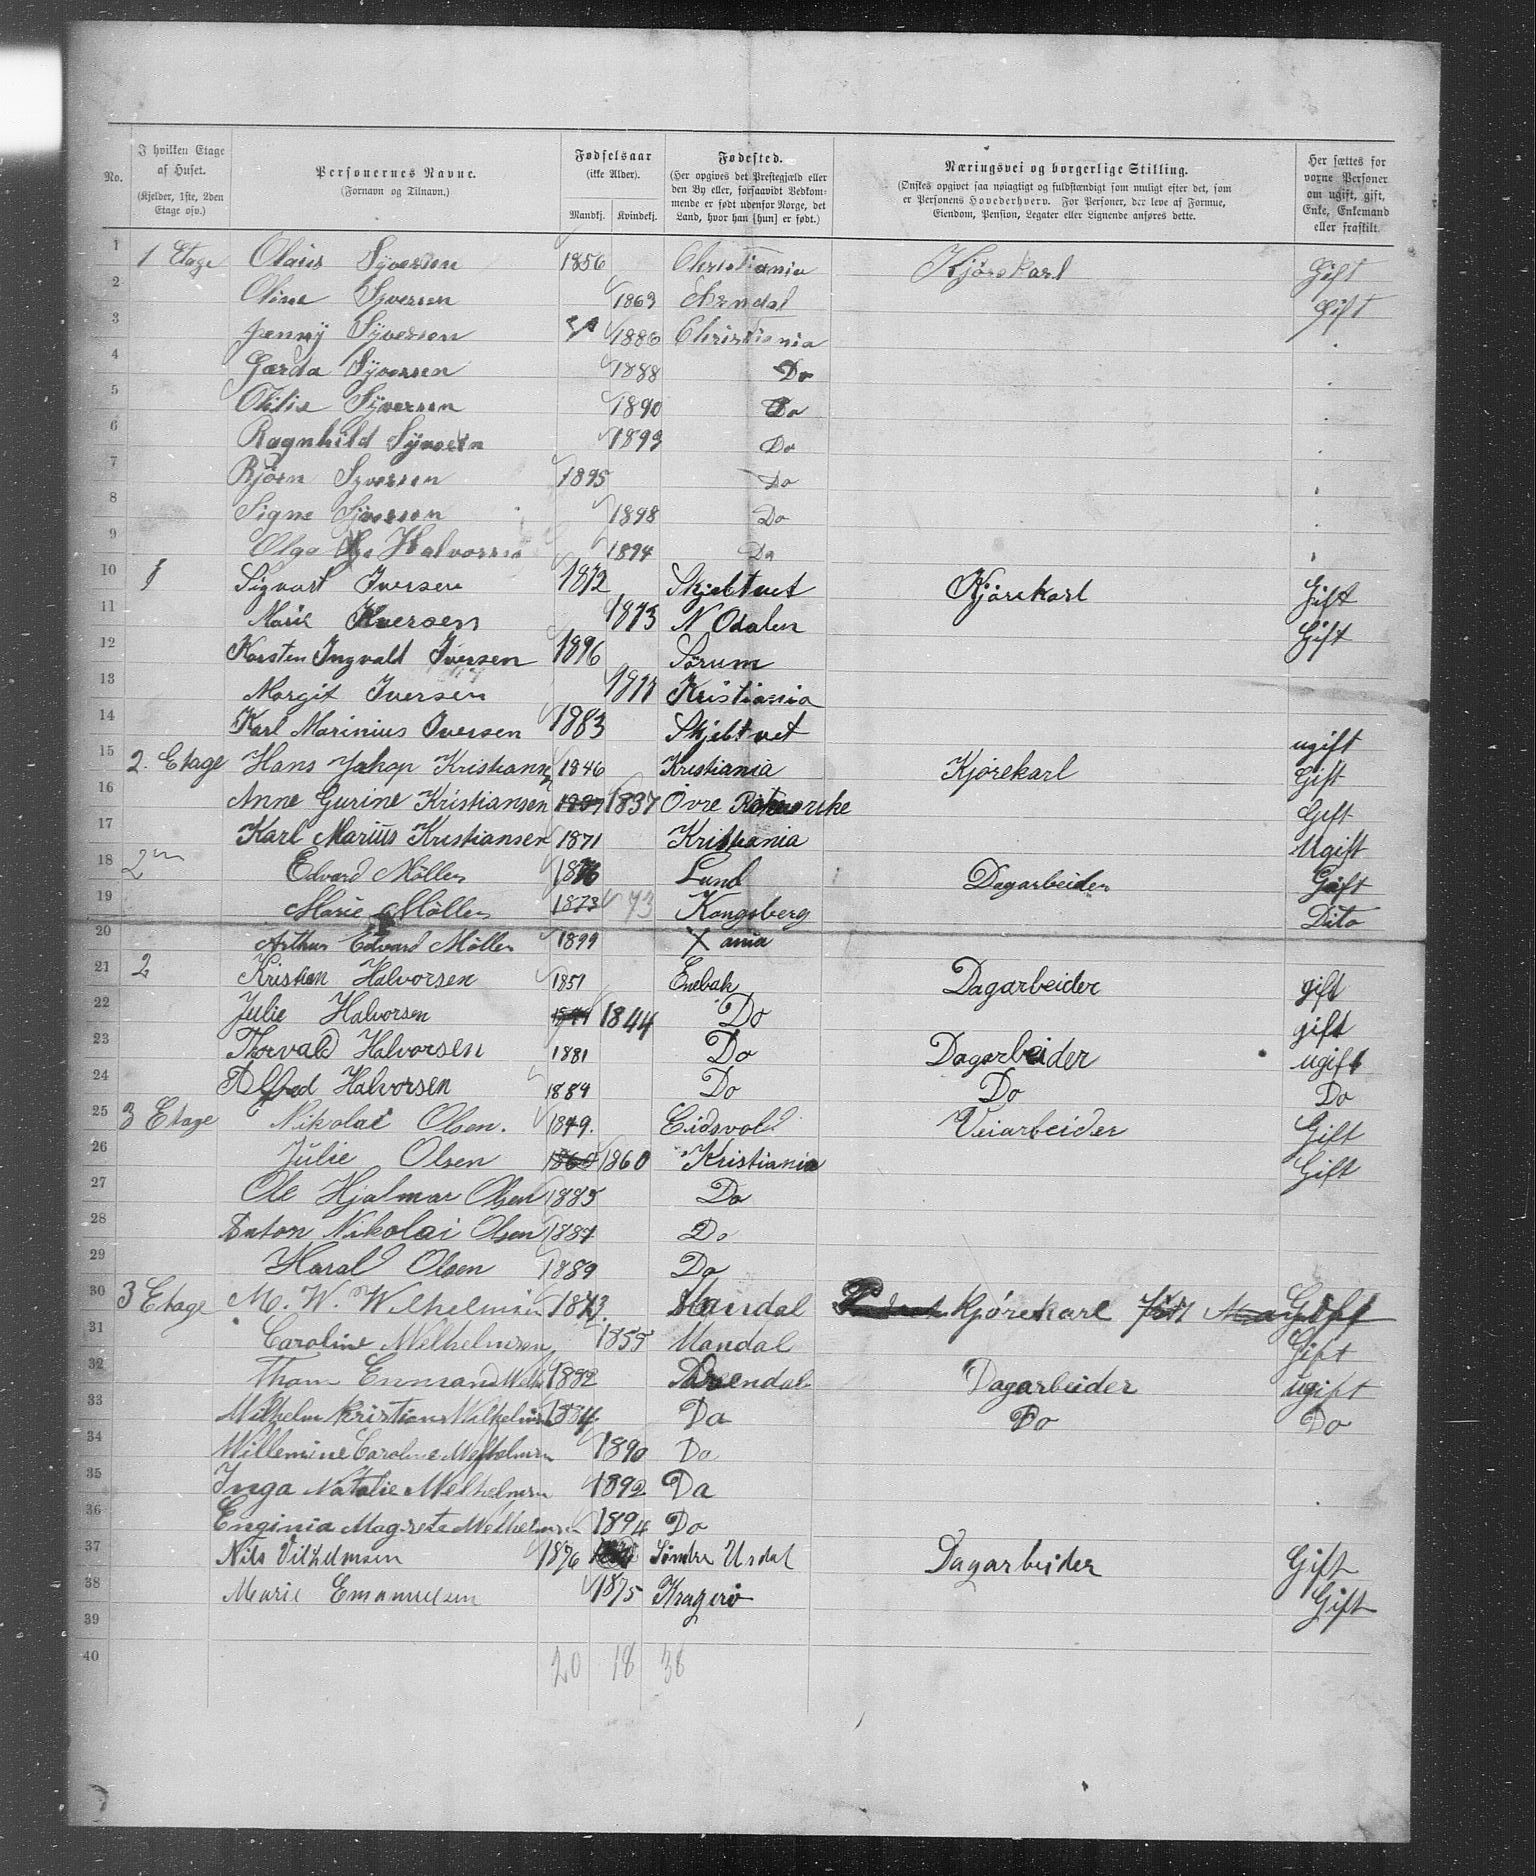 No.
I hvilken Etage af Huset. (Kjelder, 1ste, 2den Etage osv.)
Personernes Navne. (Fornavn og Tilnavn.)
Fødselsaar (ikke Alder). Mandkj. Kvindekj.
Fødested. (Her opgives det Prestegjæld eller den By eller, forsaavidt Vedkommende er født udenfor Norge, det Land, hvor han [hun] er født.)
Næringsvei og borgerlige Stilling. (Ønskes opgivet saa nøiagtigt og fuldstændigt som muligt efter det, som er Personens Hovederhverv. For Personer, der leve af Formue, Eiendom, Pension, Legater eller Lignende anføres dette.)
Her sættes for vorne Personer om ugift, gift, Enke, Enkemand eller fraskilt.
1 1 Etage Olaus Syversen 1856 Christiania Kjørekarl Gift
2 Oline Syversen 1863 Arendal Gift
3 Jenny Syversen 1886 Christiania
4 Gærda Syversen 1888 Do
5 Otilie Syversen 1890 Do
6 Ragnhild Syversen 1893 Do
7 Bjørn Syversen 1895 Do
8 Signe Syversen 1898 Do
9 Olga Halvorsen 1894 Do
10 1 Sigvart Iversen 1872 Skjebtvet Kjørekarl Gift
11 Marie Iversen 1873 N Odalen Gift
12 Karsten Ingvald Iversen 1896 Sørum
13 Margit Iversen Kristiania
14 Karl Marinius Iversen 1883 Skjebtvet ugift
15 2. Etage Hans Jakop Kristiansen 1846 Kristiania Kjørekarl Gift
16 Anne Gurine Kristiansen 1837 1837 Øvre Gift
17 Karl Marius Kristiansen 1871 Kristiania Ugift
18 2 Edvard Møller 1876 Lund Dagarbeider Gift
19 Marie Møller 1873 73 Kongsberg Dito
20 Arthur Edvard Møller 1899 X ania
21 2 Kristian Halvorsen 1851 Enebak Dagarbeider gift
22 Julie Halvorsen 1844 1844 Do gift
23 Thorvald Halvorsen 1881 Do Dagarbeider ugift
24 Alfred Halvorsen 1884 Do Do Do
25 3 Etage Nikolai Olsen. 1849. Eidsvold Veiarbeider Gift
26 Julie Olsen 1860 1860 Kristiania Gift
27 Ole Hjalmar Olsen 1885 Do
28 Anton Nikolai Olsen 1887 Do
29 Harald Olsen 1889 Do
30 3 Etage M. W. Wilhelmsen 1843. Mandal Kjørekarl Gift
31 Caroline Welhelmsen 1855 Mandal Gift
32 Thom Enmand Welh 1882 Arendal Dagarbeider ugift
33 Wilhelm Kristian Wilhelmsen 1884 Do Do Do
34 Willemine Caroline Welhelmsen 1890 Do
35 Inga Natalie Welhelmsen 1892 Da
36 Enginia Magrete Welhelmsen 1894 Do
37 Nils Vilhelmsen 1876 Søndre Undal Dagarbeider Gift
38 Marie Emanuelsen 1875 Kragerø Gift
39
40 20 18 38